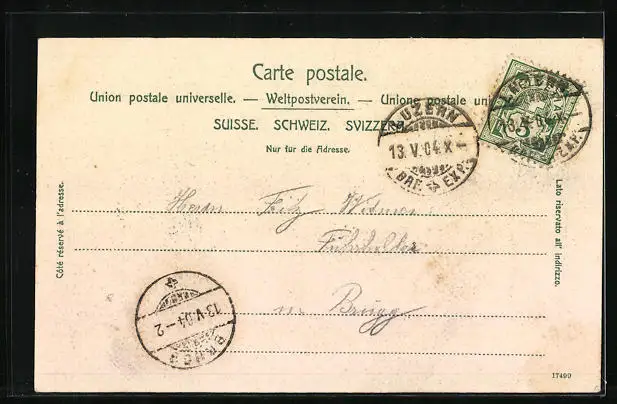 Carte postale.
Union postale universelle. — Weltpostverein. — Unione postale uni
SUISSE. SCHWEIZ. SVIZZERA.
Nur für die Adresse.
LUZERN
13.V.04.X-
BRF. EXP.
LUZERN
13.V.04.X
BRF. EXP.
5
Côté réservé à l'adresse.
Lato riservato all' indirizzo.
Herrn Fritz Widmer
Fuhrhalter
in Brugg
13.V.04-2
BRUGG
17499